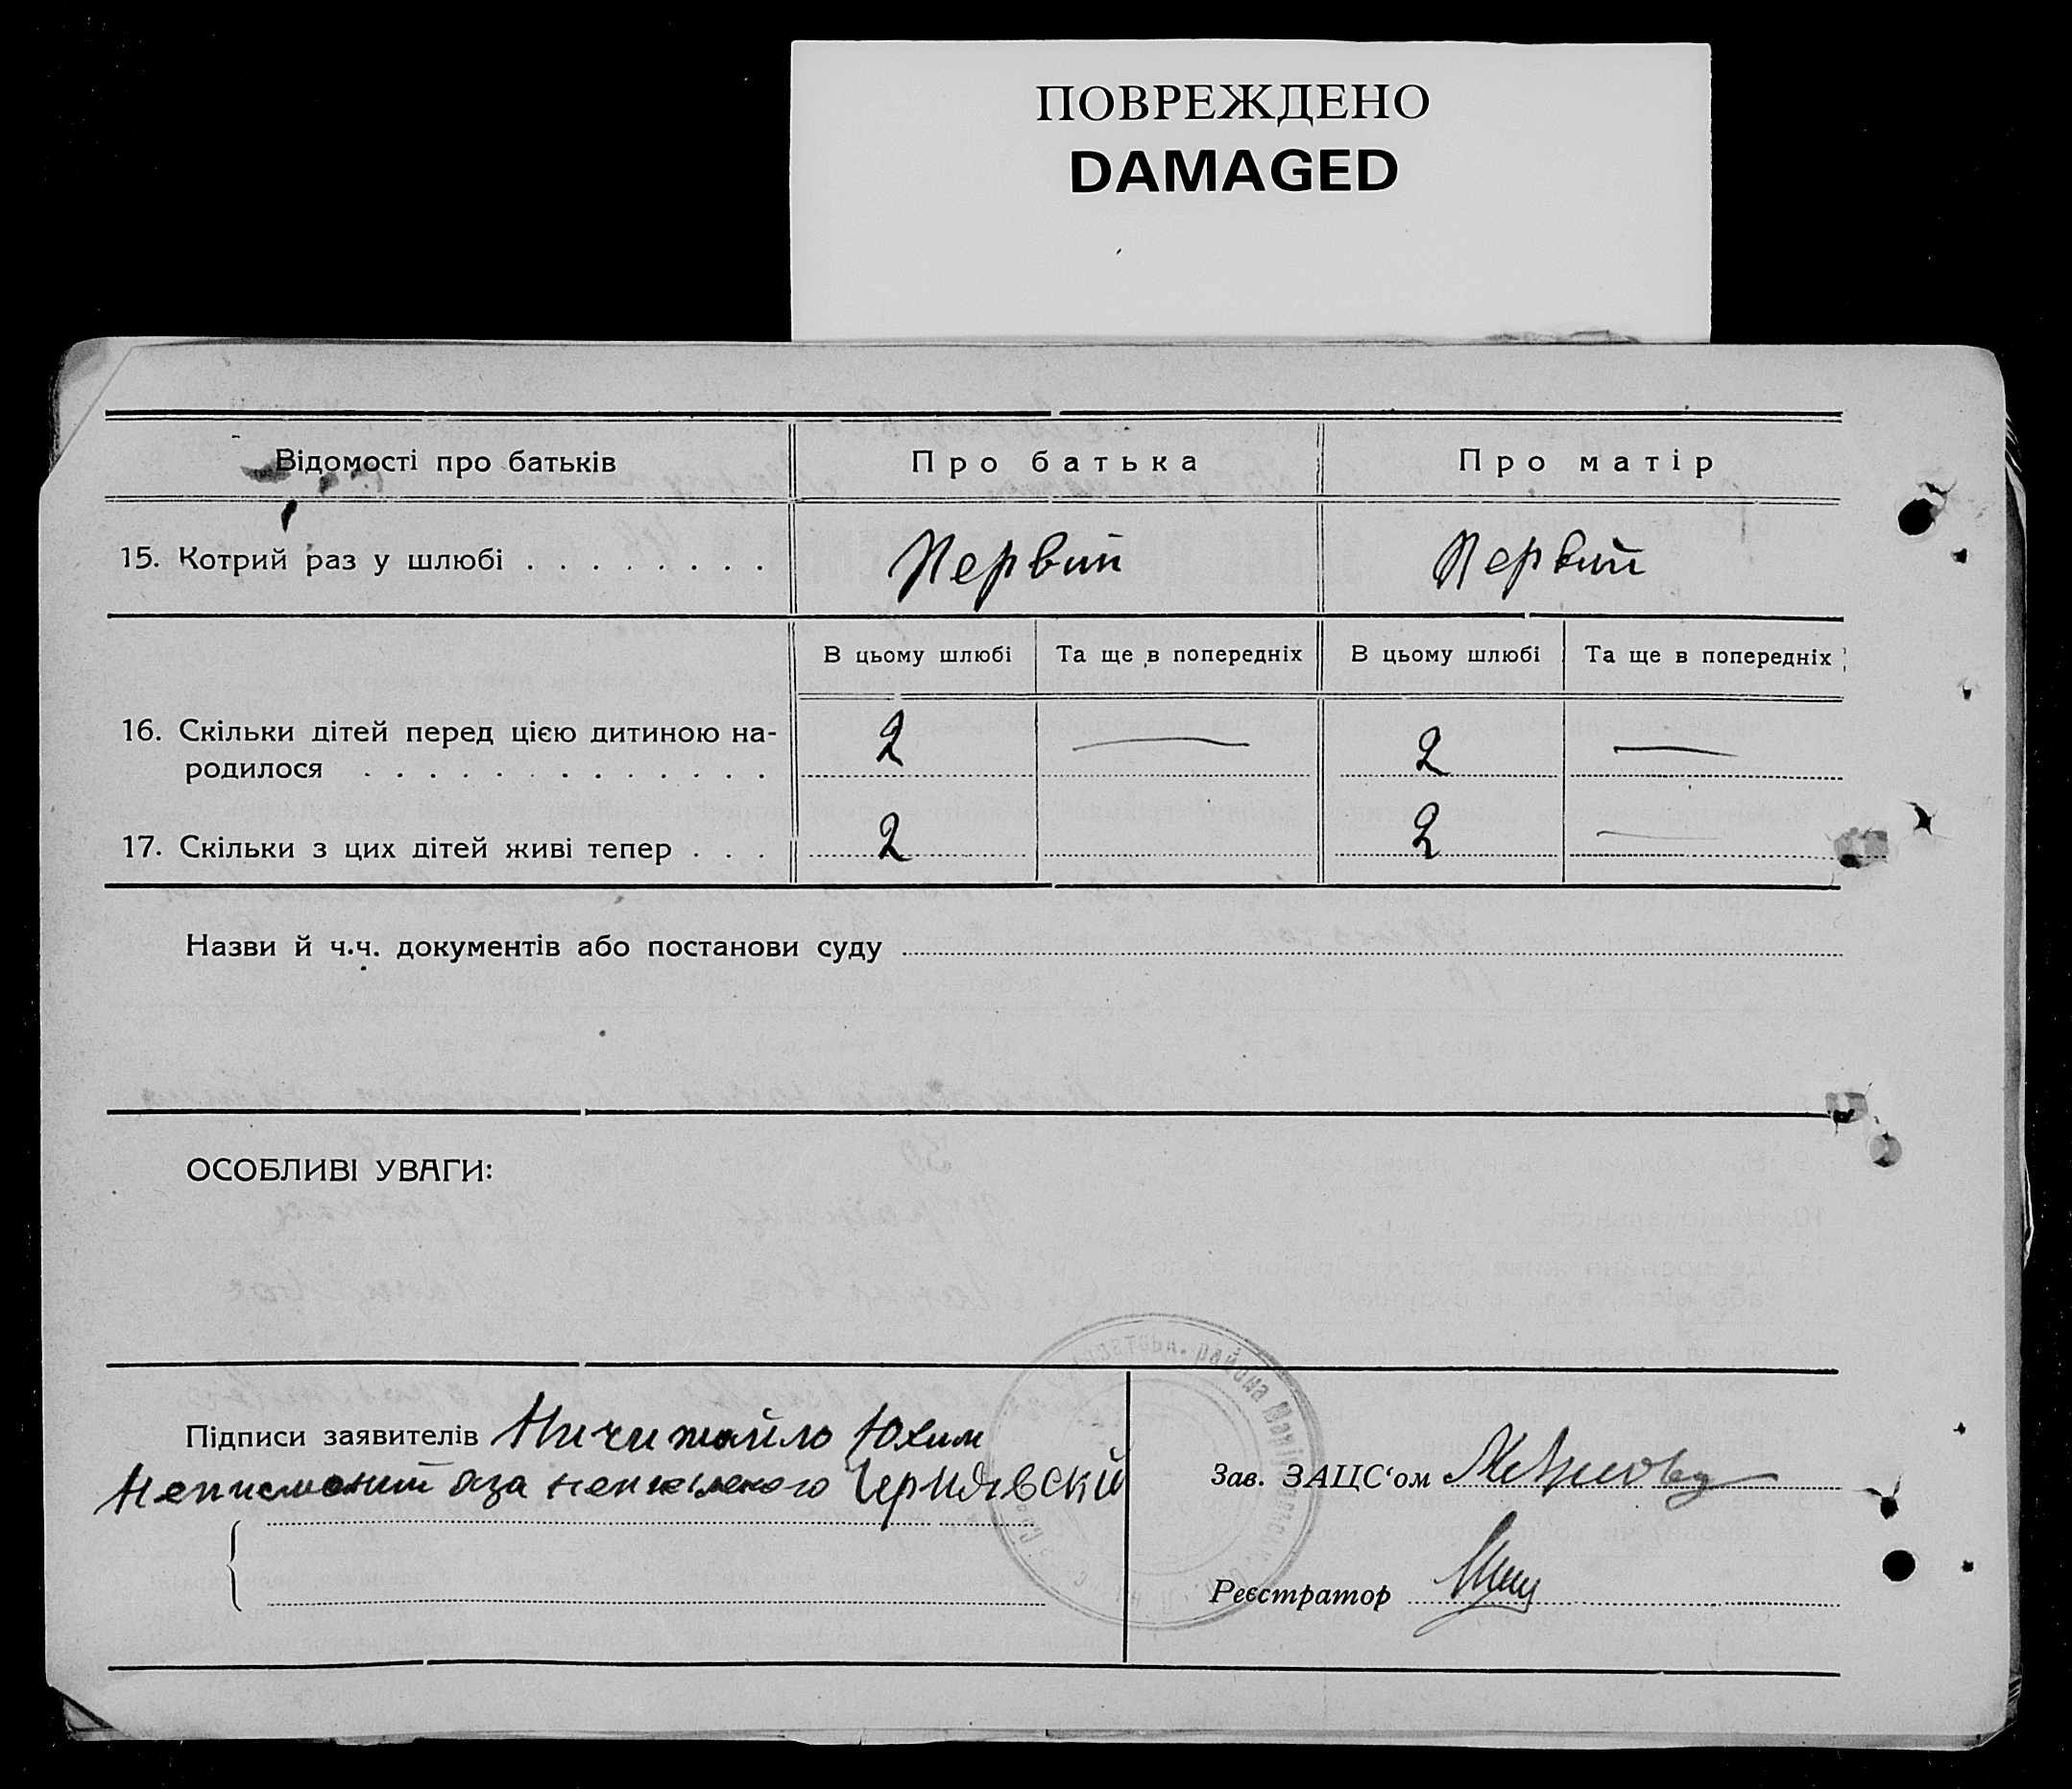 ПОВРЕЖДЕНО
DAMAGED
Відомості про батьків
Про батька
Про матір
15. Котрий раз у шлюбі
Первий
Первий
В цьому шлюбі
Та ще в попередніх
В цьому шлюбі
Та ще в попередніх
16. Скільки дітей перед цією дитиною на-
родилося
2
—
2
—
17. Скільки з цих дітей живі тепер
2
2
—
Назви й ч.ч. документів або постанови суду
ОСОБЛИВІ УВАГИ:
Підписи заявителів Ничипайло Юхим
Неписмений аза неписмного Чернявский
Зав. ЗАЦС‘ом
Реєстратор
района